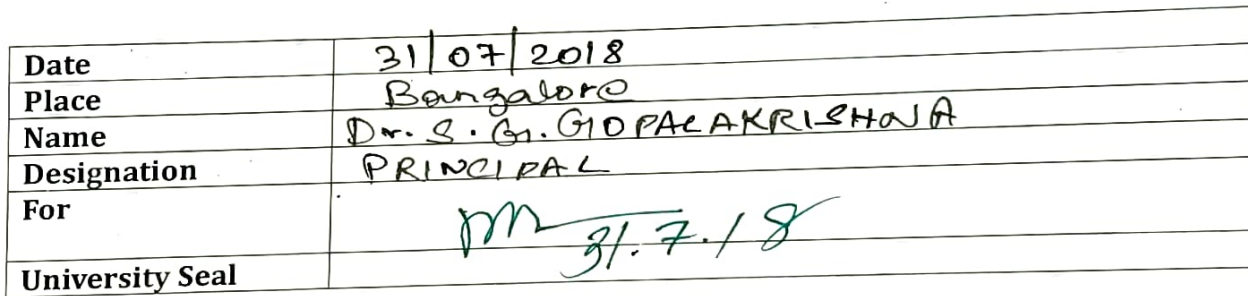 Date 31/07/2018
Place Bangalore
Name Dr. S. G. GOPALAKRISHNA
Designation PRINCIPAL
For
31.7.18
University Seal